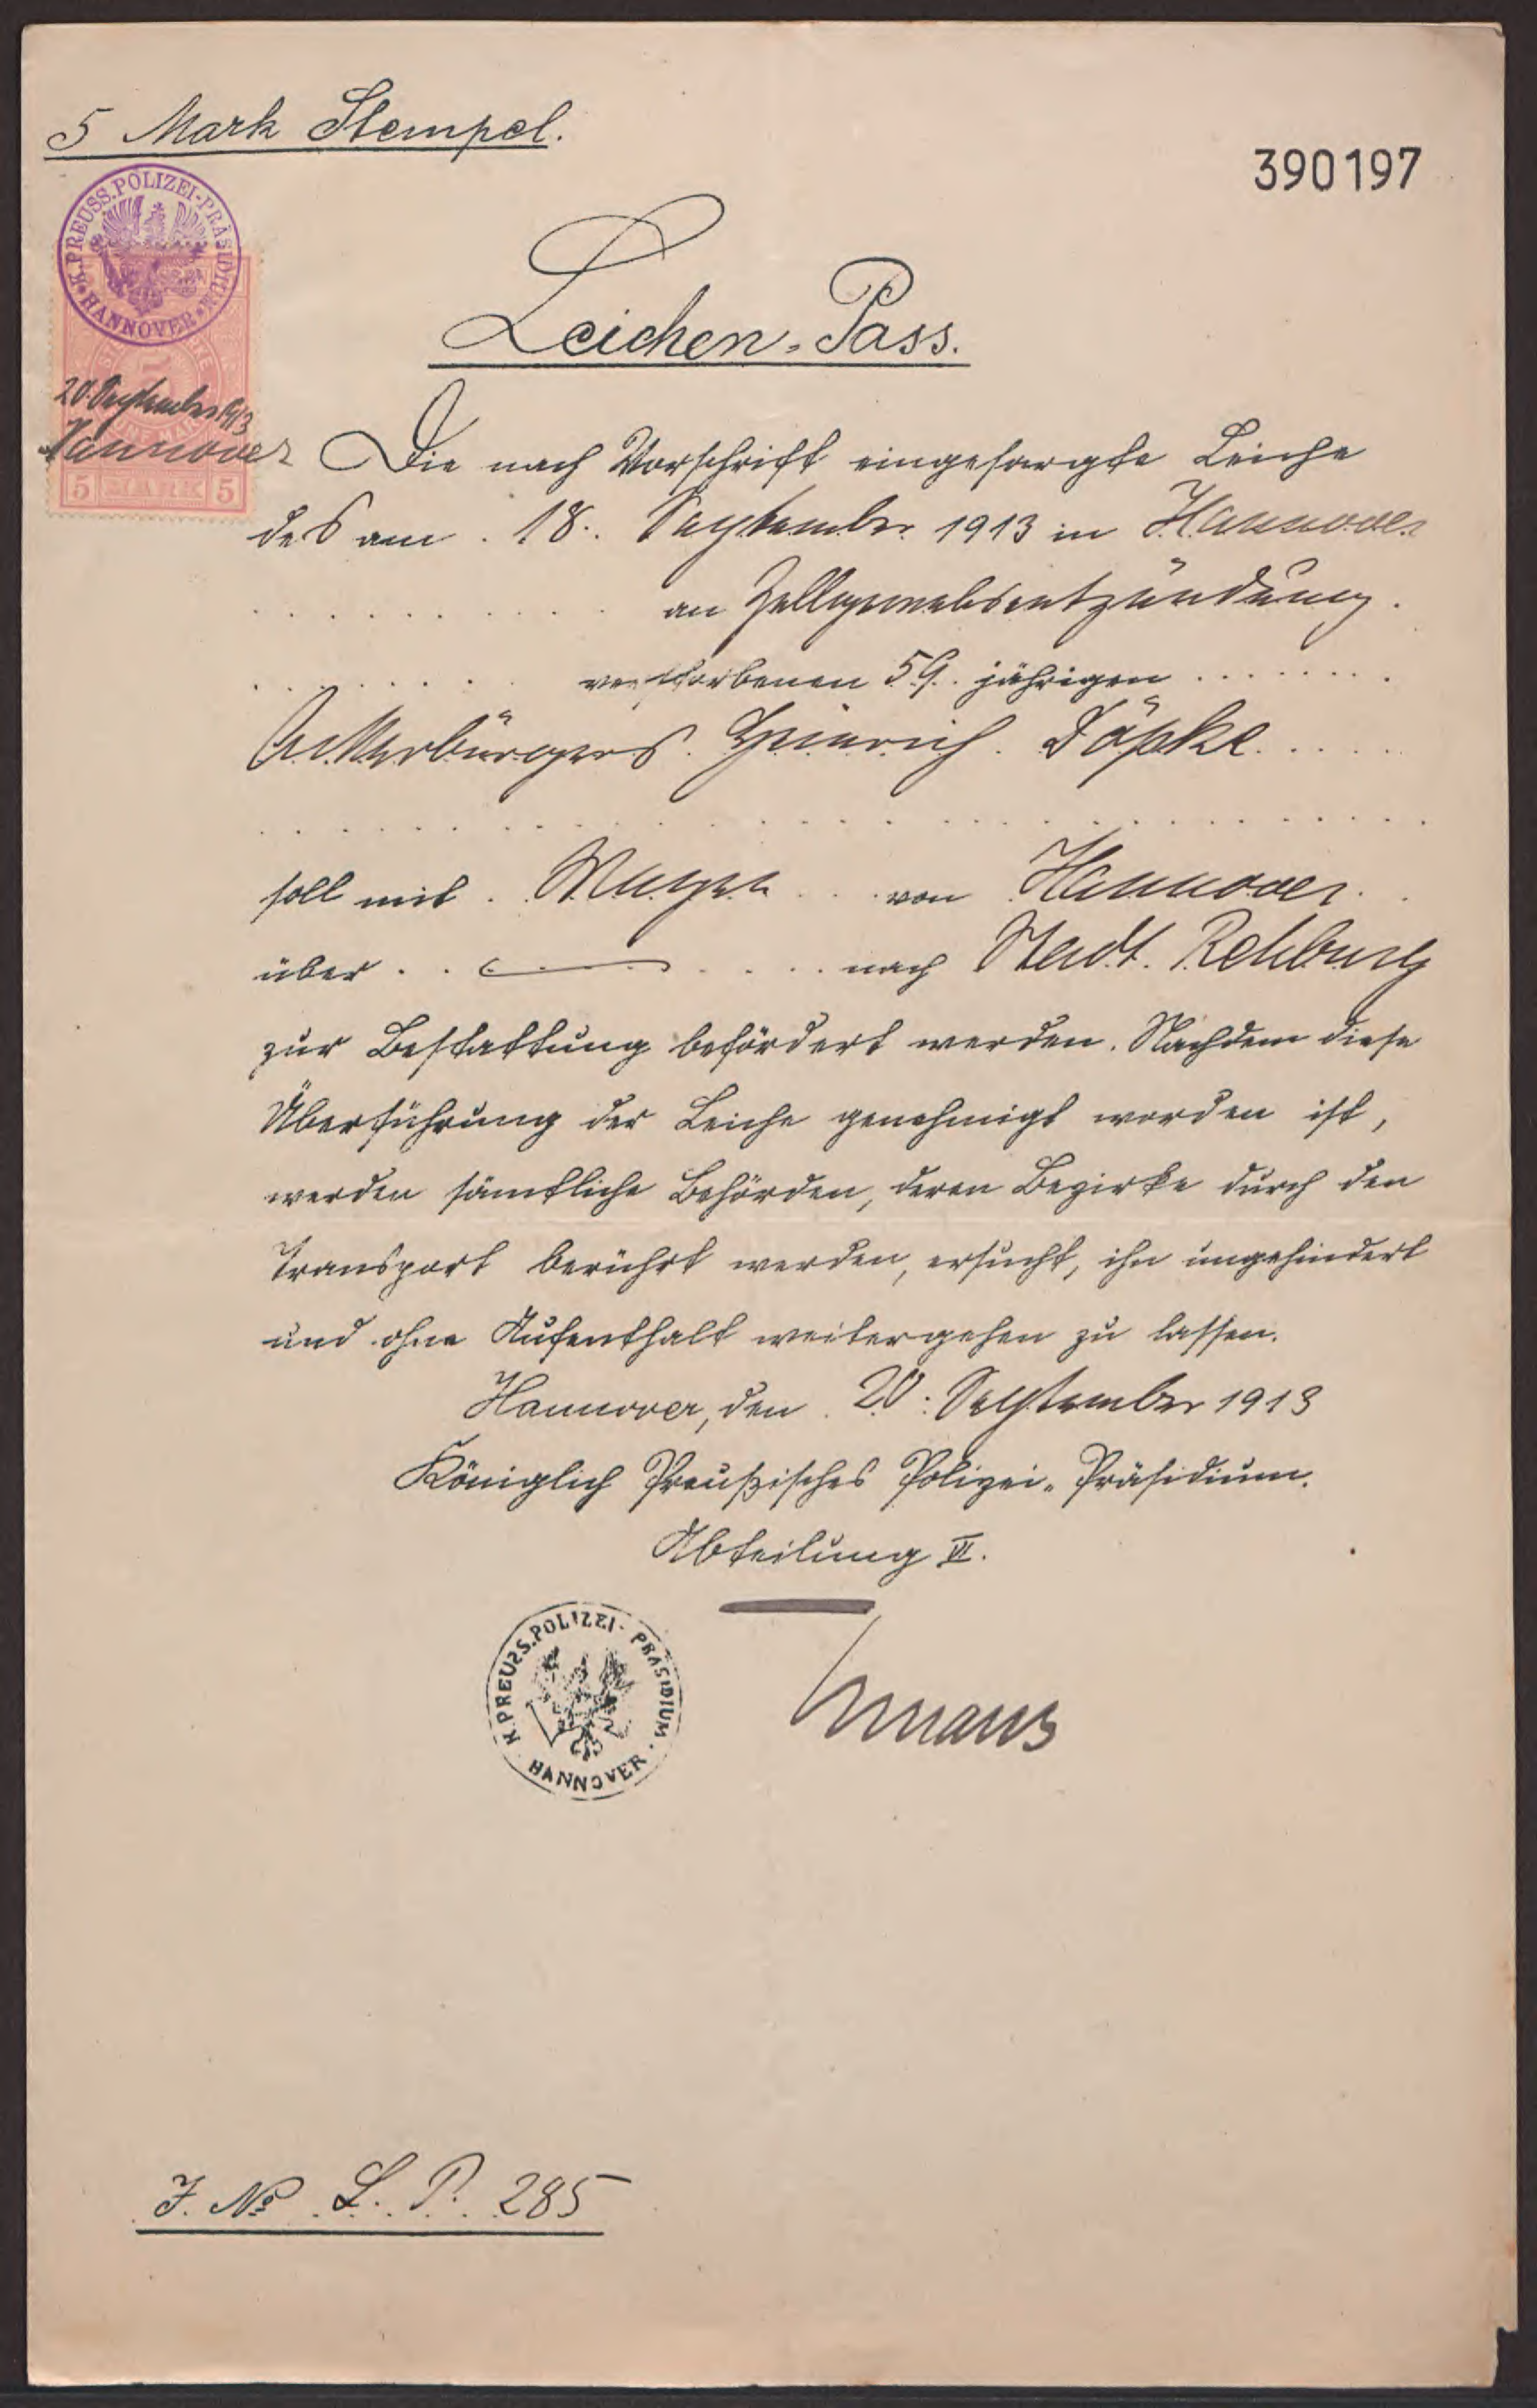 5 Mark Stempel.
390197
K. PREUSS. POLIZEI-PRÄSIDIUM
HANNOVER
20. September 1913
Hannover
5 MARK 5
Leichen-Pass.
Die nach Vorschrift eingesargte Leiche
des am 18. September 1913 in Hannover
an Zellgewebsentzündung
verstorbenen 59 jährigen
Ackerbürgers Heinrich Döpke
soll mit Wagen von Hannover
über nach Stadt Rehburg
zur Bestattung befördert werden. Nachdem diese
Überführung der Leiche genehmigt worden ist,
werden sämtliche Behörden, deren Bezirke durch den
Transport berührt werden, ersucht, ihn ungehindert
und ohne Aufenthalt weitergehen zu lassen.
Hannover, den 20. September 1913
Königlich Preußisches Polizei-Präsidium.
Abteilung VI.
K. PREUSS. POLIZEI-PRÄSIDIUM.
HANNOVER
J. No L. P. 285